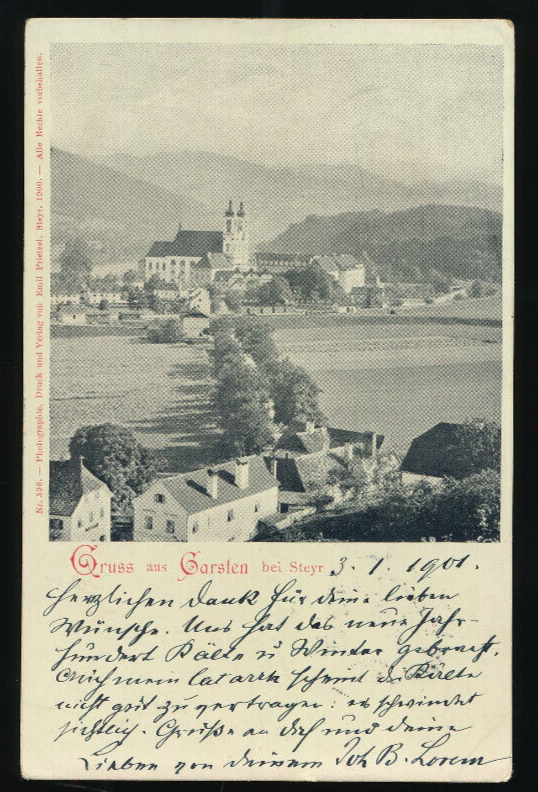 Nr. 536. — Photographie, Druck und Verlag von Emil Prietzel, Steyr, 1900. — Alle Rechte vorbehalten.
Gruss aus Garsten bei Steyr 3. 1. 1901.
Herzlichen Dank für deine lieben
Wünsche. Uns hat das neue Jahr-
hundert Kälte u Winter gebracht.
Auch mein Catarrh scheint die Kälte
nicht gut zu vertragen: er schwindet
sichtlich. Grüße an dich und deine
Lieben von deinem Joh B.